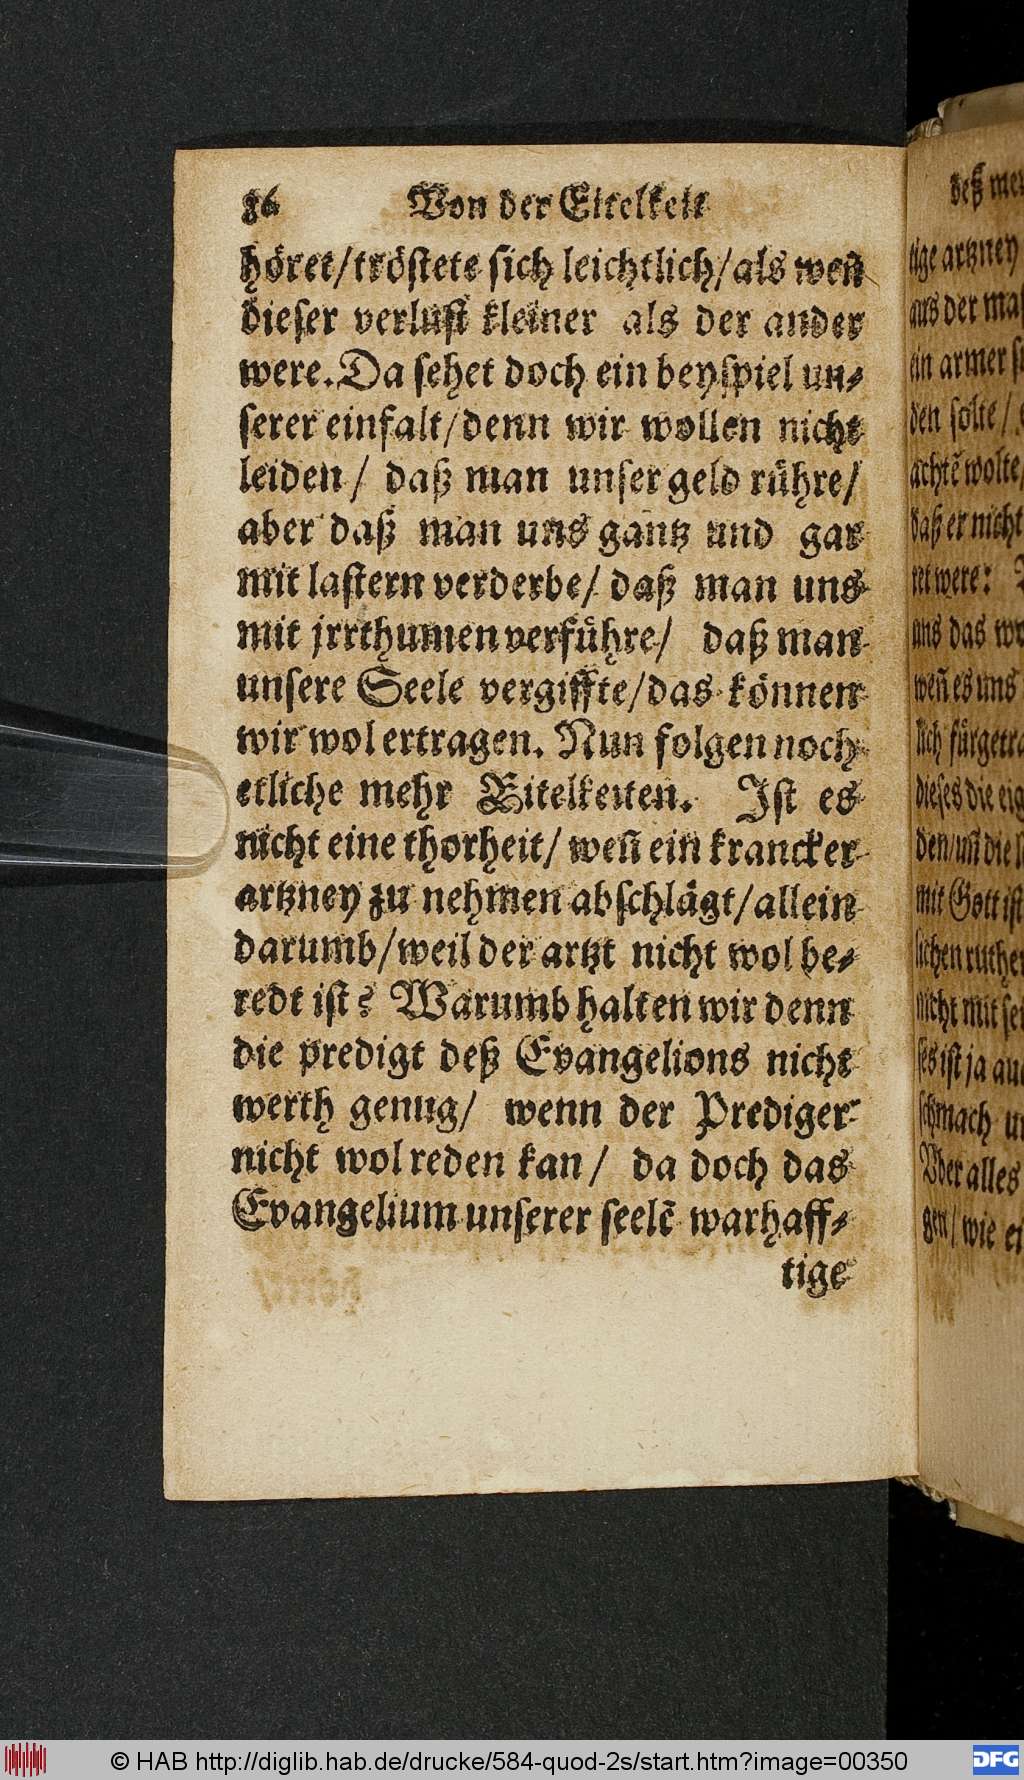 86 Von der Eitelkeit
höret/tröstete sich leichtlich/als weñ
dieser verlust kleiner als der ander
were. Da sehet doch ein beyspiel un-
serer einfalt/denn wir wollen nicht
leiden/ daß man unser geld rühre/
aber daß man uns gantz und gar
mit lastern verderbe/ daß man uns
mit jrrthumen verführe/ daß man
unsere Seele vergiffte/das können
wir wol ertragen. Nun folgen noch
etliche mehr Eitelkeiten. Ist es
nicht eine thorheit/ weñ ein krancker
artzney zu nehmen abschlägt/allein
darumb/weil der artzt nicht wol be-
redt ist? Warumb halten wir denn
die predigt deß Evangelions nicht
werth genug/ wenn der Prediger
nicht wol reden kan/ da doch das
Evangelium unserer seelẽ warhaff-
tige
deß
tige artzney
aus der
ein armer
den solte/
achtẽ wolte/
daß er nicht
ret were:
uns das
weñ es uns
lich
dieses die
den/uñ die
mit Gott ist
nicht mit
ses ist ja
schmach
Uber alles
gen/ wie
© HAB http://diglib.hab.de/drucke/584-quod-2s/start.htm?image=00350
DFG